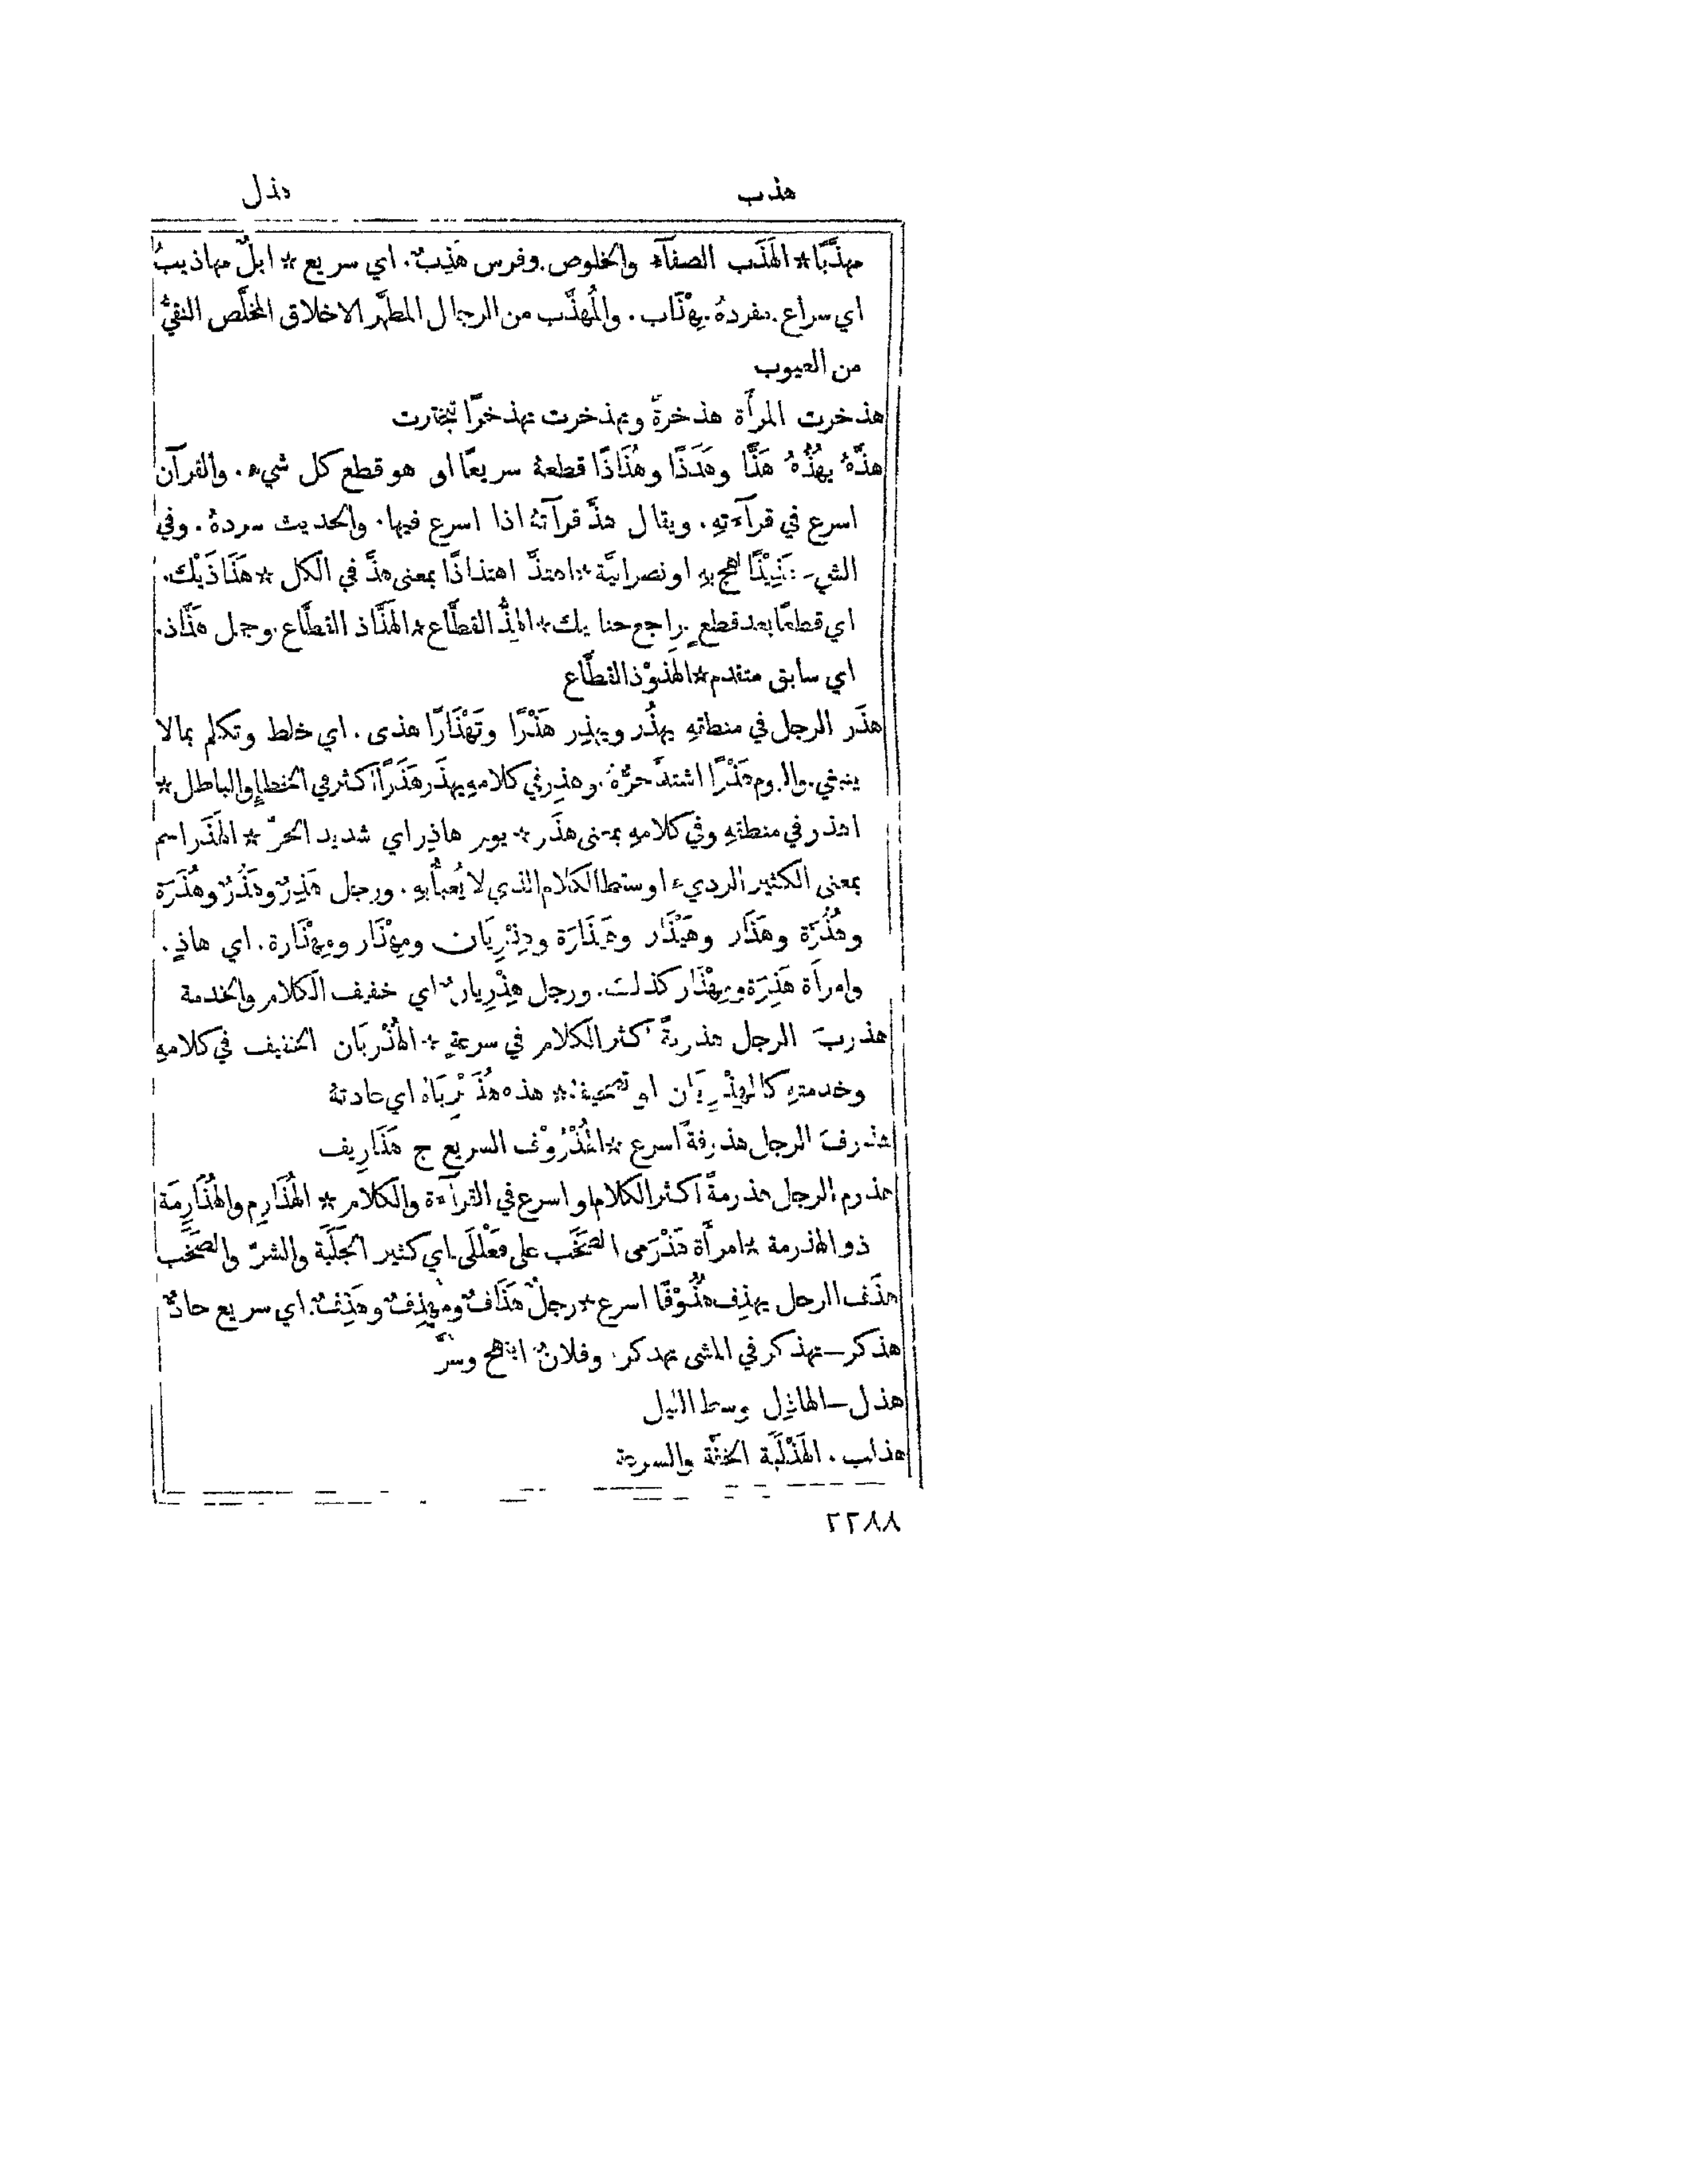 هذب
هذل
مهذَّبًا* الهَذَب الصفآء والخلوص. وفرس هَذِبٌ. اي سريع * ابلٌ مهاذيبُ
اي سراع. مفردهُ. مِهْذَاب. والمُهذَّب من الرجال المطهَّر الاخلاق المخلَّص النقيُّ
من العيوب
هذخرت المرأَة هذخرةً وتهذخرت تهذخرًا تبخترت
هذَّهُ يهُذُّهُ هَذًّا وهَذَذًا وهُذَاذًا قطعهُ سريعًا او هو قطع كل شيء. والقرآن
اسرع في قرآءَتهِ. ويقال هذَّ قرآتهُ اذا اسرع فيها. والحديث سردهُ. وفي
لهج بهِ او نصرانيَّة* اهتذَّ اهتذاذًا بمعنى هذَّ في الكل * هَذَاذَيْك.
اي قطعًا بعد قطعٍ. راجع حنانيك* الهِذُّ القطَّاع* الهَذَّاذ القطَّاع. وجمل هَذَّاذ.
اي سابق متقدم* الهذوْذ القطَّاع
هذَر الرجل في منطقهِ يهذُر ويهذِر هَذْرًا وتَهْذَارًا هذى. اي خلط وتكلم بما لا
ينبغي. واليوم هَذْرًا اشتدَّ حرُّهُ. وهذِر في كلامهِ يهذَر هَذَرًا اكثر في الخطإِ والباطل *
اهذر في منطقهِ وفي كلامهِ بمعنى هذَر * يوم هاذِر اي شديد الحرّ * الهَذَر اسم
بمعنى الكثير الرديء او سقط الكلام الذي لا يُعبأُ بهِ. ورجل هَذِرٌ وهَذُرٌ وهُذَرَة
وهُذُرَّة وهَذَّار وهَيْذَار وهَيْذَارَة وهِذْرِيَان ومِهْذَار ومِهْذَارة. اي هاذٍ.
وامرأَة هَذِرَة ومِهْذَار كذلك. ورجل هِذْرِيانٌ اي خفيف الكلام والخدمة
هذربَ الرجل هذربةً كثر الكلام في سرعةٍ * الهُذْرُبَان الخفيف في كلامهِ
وخدمتهِ كالهِذْرِيَان او تصحيفهُ* هذه اي عادتهُ
هذرفَ الرجل هذرفةً اسرع * الهُذْرُوْف السريع ج هَذَارِيف
هذرم الرجل هذرمةً اكثر الكلام او اسرع في القرآءة والكلام * الهُذَارِم والهُذَارِمَة
ذو الهذرمة * امرأَة هَذْرَمى الصَّخَب على فَعْلَلَى. اي كثير الجَلَبَة والشرّ والصَّخَب
هذَف الرجل يهذِف هُذُوْفًا اسرع * رجلٌ هَذَّافٌ ومِهْذِفٌ وهَذِفٌ. اي سريع حادٌّ
هذكر— تهذكر في المشى تهدكر. وفلانٌ ابتهج وسُرَّ
هذل—الهاذِل وسط الليل
هذلب. الهَذْلَبَة الخفَّة والسرعة
٢٢٨٨